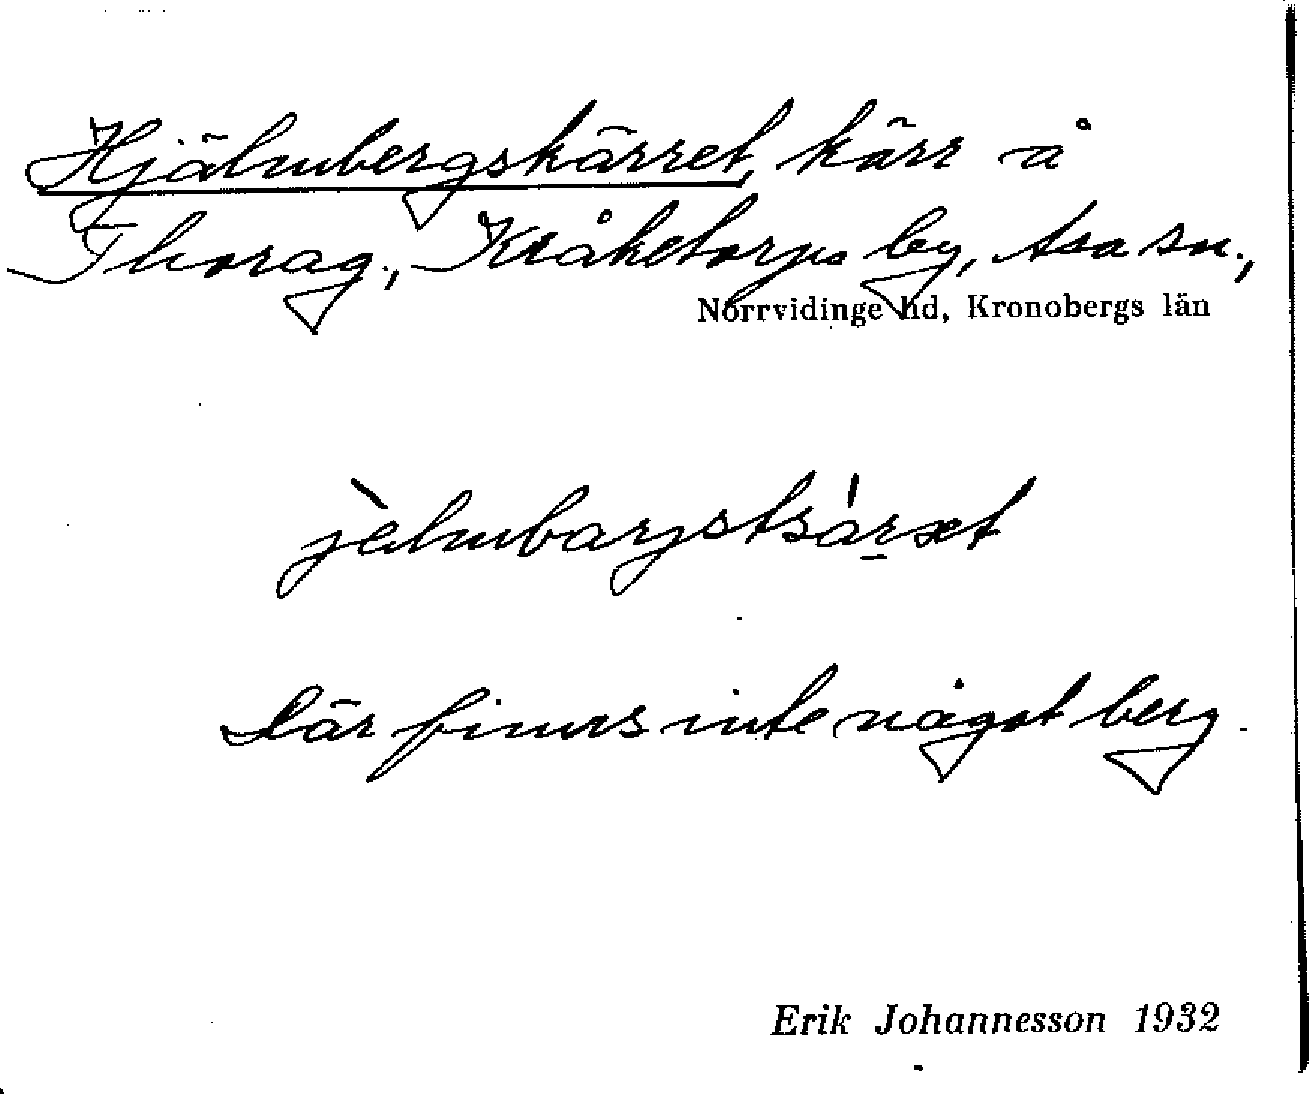 Hjälmbergskärret, kärr å
Thorag., Kråketorps by, Asa sn.,
Norrvidinge hd, Kronobergs län
Där finns inte något berg.
Erik Johannesson 1932